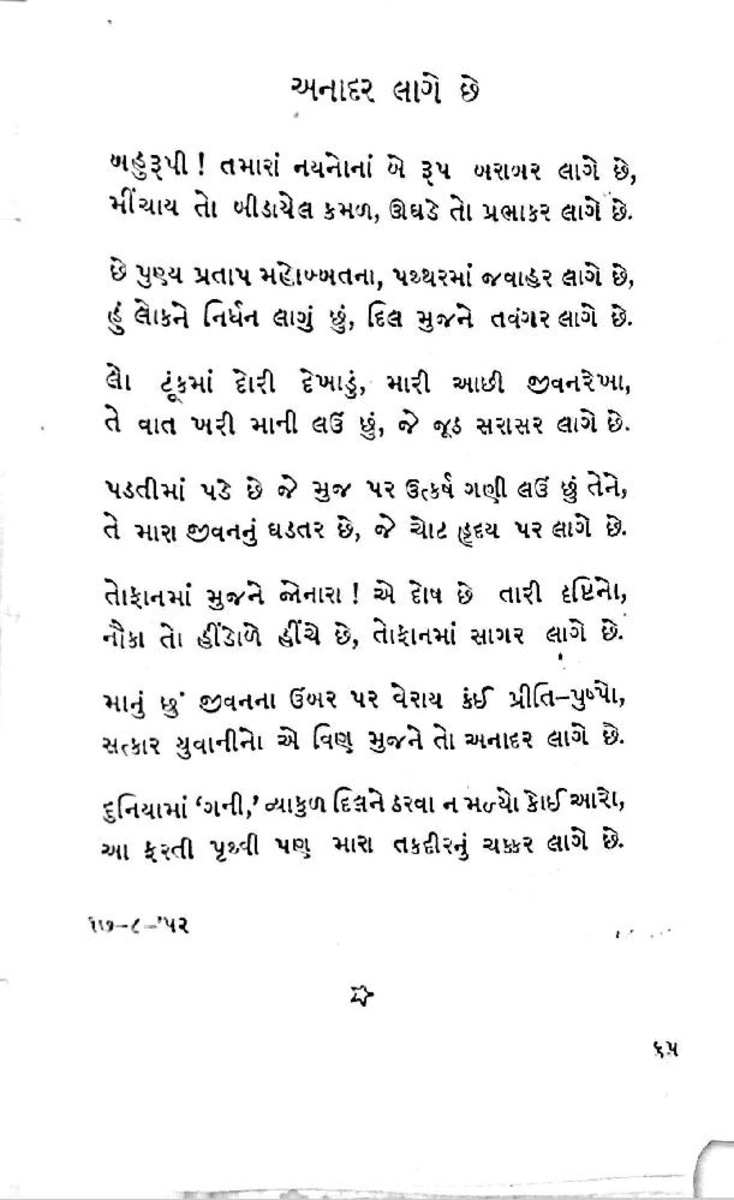 અનાદર લાગે છે
બહુરૂપી ! તમારાં નયનોનાં બે રૂપ બરાબર લાગે છે,
મીંચાય તો બીડાયેલ કમળ, ઊઘડે તો પ્રભાકર લાગે છે.
છે પુણ્ય પ્રતાપ મહોબ્બતના, પથ્થરમાં જવાહર લાગે છે,
હું લોકને નિર્ધન લાગું છું, દિલ મુજને તવંગર લાગે છે.
લો ટૂંકમાં દોરી દેખાડું, મારી આછી જીવનરેખા,
તે વાત ખરી માની લઉં છું, જે જૂઠ સરાસર લાગે છે.
પડતીમાં પડે છે જે મુજ પર ઉત્કર્ષ ગણી લઉં છું તેને,
તે મારા જીવનનું ઘડતર છે, જે ચોટ હૃદય પર લાગે છે.
તોફાનમાં મુજને જોનારા ! એ દોષ છે તારી દૃષ્ટિનો,
નૌકા તો હીંડોળે હીંચે છે, તોફાનમાં સાગર લાગે છે.
માનું છું જીવનના ઉંબર પર વેરાય કંઈ પ્રીતિ–પુષ્પો,
સત્કાર યુવાનીનો એ વિણ મુજને તો અનાદર લાગે છે.
દુનિયામાં ‘ગની,’ વ્યાકુળ દિલને ઠરવા ન મળ્યો કોઈ આરો,
આ ફરતી પૃથ્વી પણ મારા તકદીરનું ચક્કર લાગે છે.
૬૫